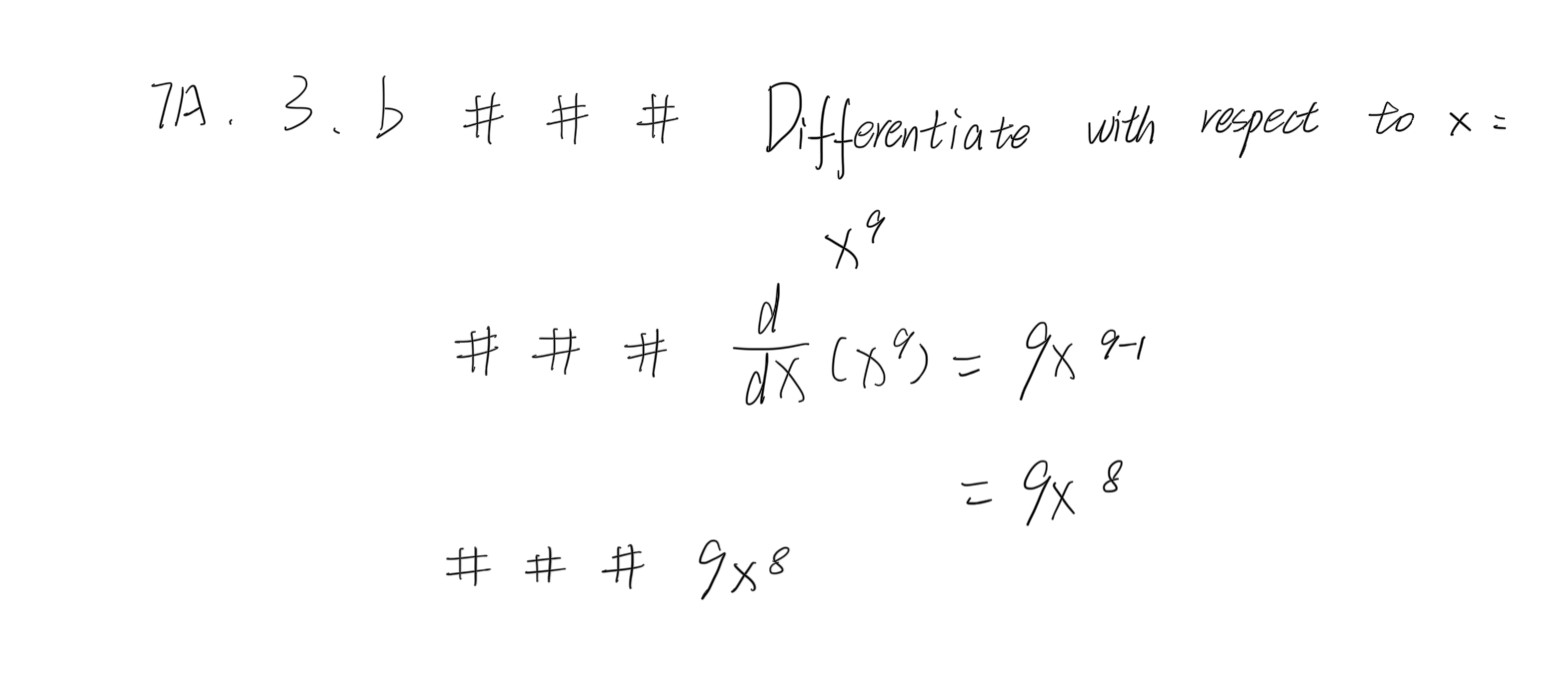 7A. 3. b # # # Differentiate with respect to x =
x⁹
# # # d/dx (x⁹) = 9x⁹⁻¹
= 9x⁸
# # # 9x⁸